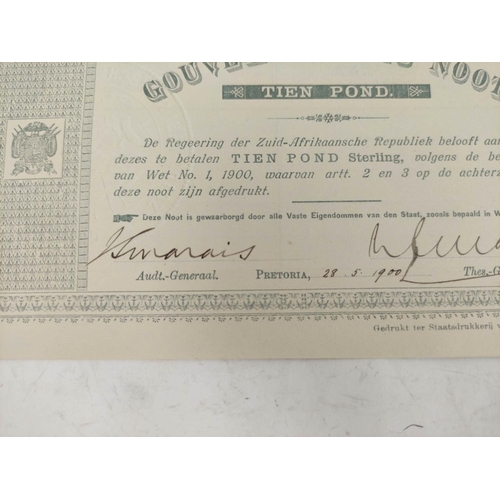 GOUVE NOOT
TIEN POND.
De Regeering der Zuid-Afrikaansche Republiek belooft aan
dezes te betalen TIEN POND Sterling, volgens de be
van Wet No. 1, 1900, waarvan artt. 2 en 3 op de achterz
deze noot zijn afgedrukt.
Deze Noot is gewaarborgd door alle Vaste Eigendommen van den Staat, zooals bepaald in W
JSmarais
Audt.-Generaal. PRETORIA, 28.5.1900 Thes.-G
Gedrukt ter Staatsdrukkerij v